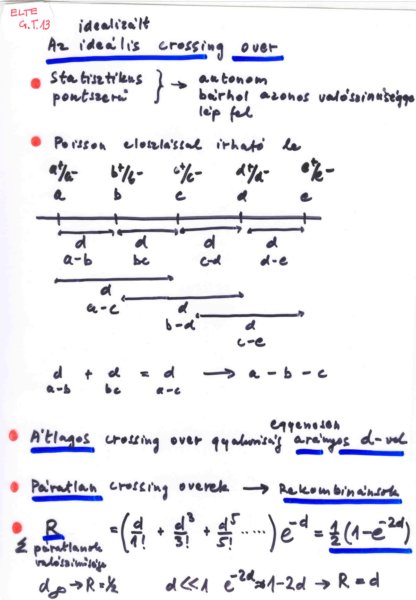 ELTE
G.T.13
idealizált
Az ideális crossing over
Statisztikus
pontszerű
} → autonom
bárhol azonos valószinűséggel
lép fel
Poisson eloszlással irható le
a+/a- b+/b- c+/c- d+/d- e+/e-
a b c d e
d d d d
a-b bc c-d d-e
d
a-c
d
b-d
d
c-e
d + d = d → a - b - c
a-b bc a-c
egyenesen
Átlagos crossing over gyakoriság arányos d-vel
Páratlan crossing overek → Rekombinánsok
R = (d/1! + d³/3! + d⁵/5! .....) e^-d = 1/2 (1-e^-2d)
Σ páratlanok
valószinűsége
d∞ → R=1/2 d<<1 e^-2d ≈ 1-2d → R = d